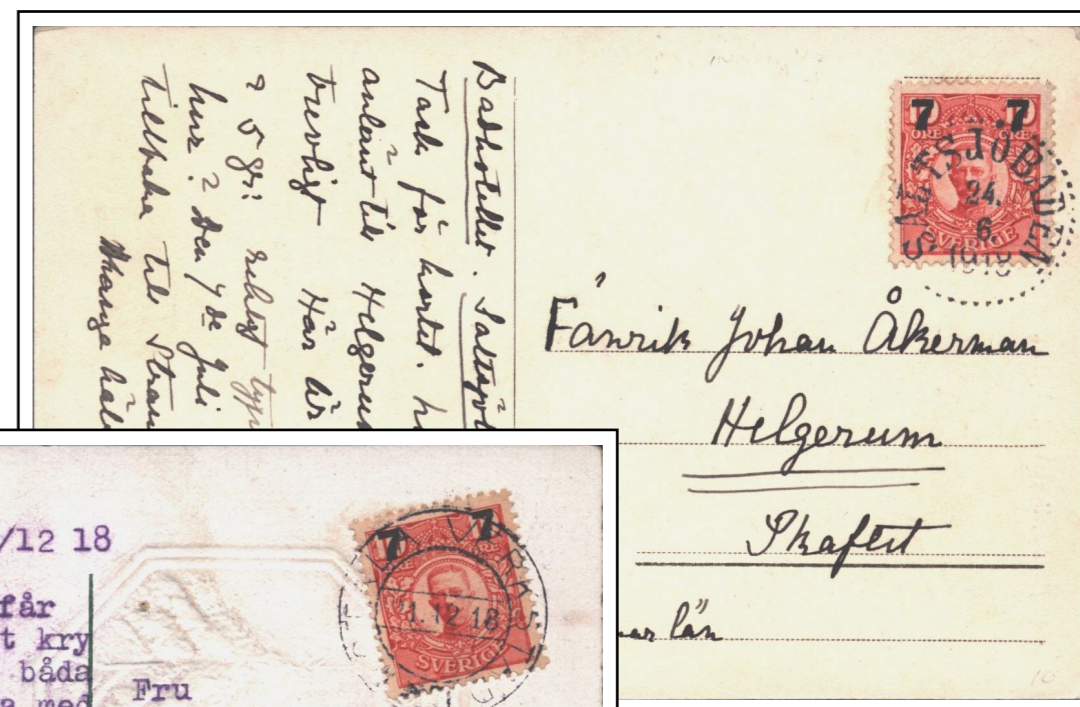 Badhotellet. Saltsjö
Tack för kortet.
anlänt till Helgerum
trevligt Här är
25 gr:! riktigt
hur? Den 7de Juli
tillbaka till Stran
Många häl
7 7
10 ÖRE ÖRE
SALTSJÖBADEN
24.
6.
1918
SVERIGE
Fänrik Johan Åkerman
Helgerum
Skaftet
ar län
10
/12 18
får
t kry
båda
a med
Fru
7 7
ÖRE
1.12 18
SVERIGE